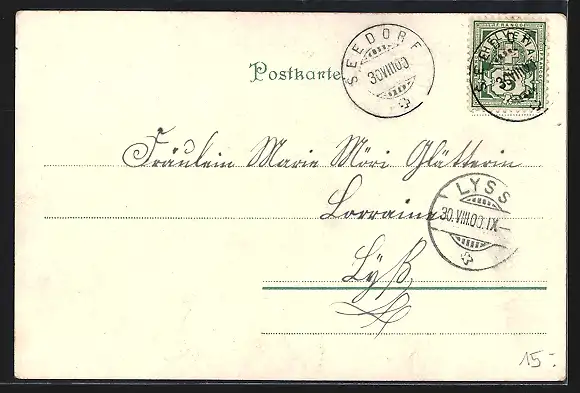 SEEDORF
30 VIII 00
FRANCO
HELVETIA
5
Postkarte.
Fräulein Marie Möri Glätterin
LYSS
30.VIII.00.IX
Lorraine
Lyß
15.-